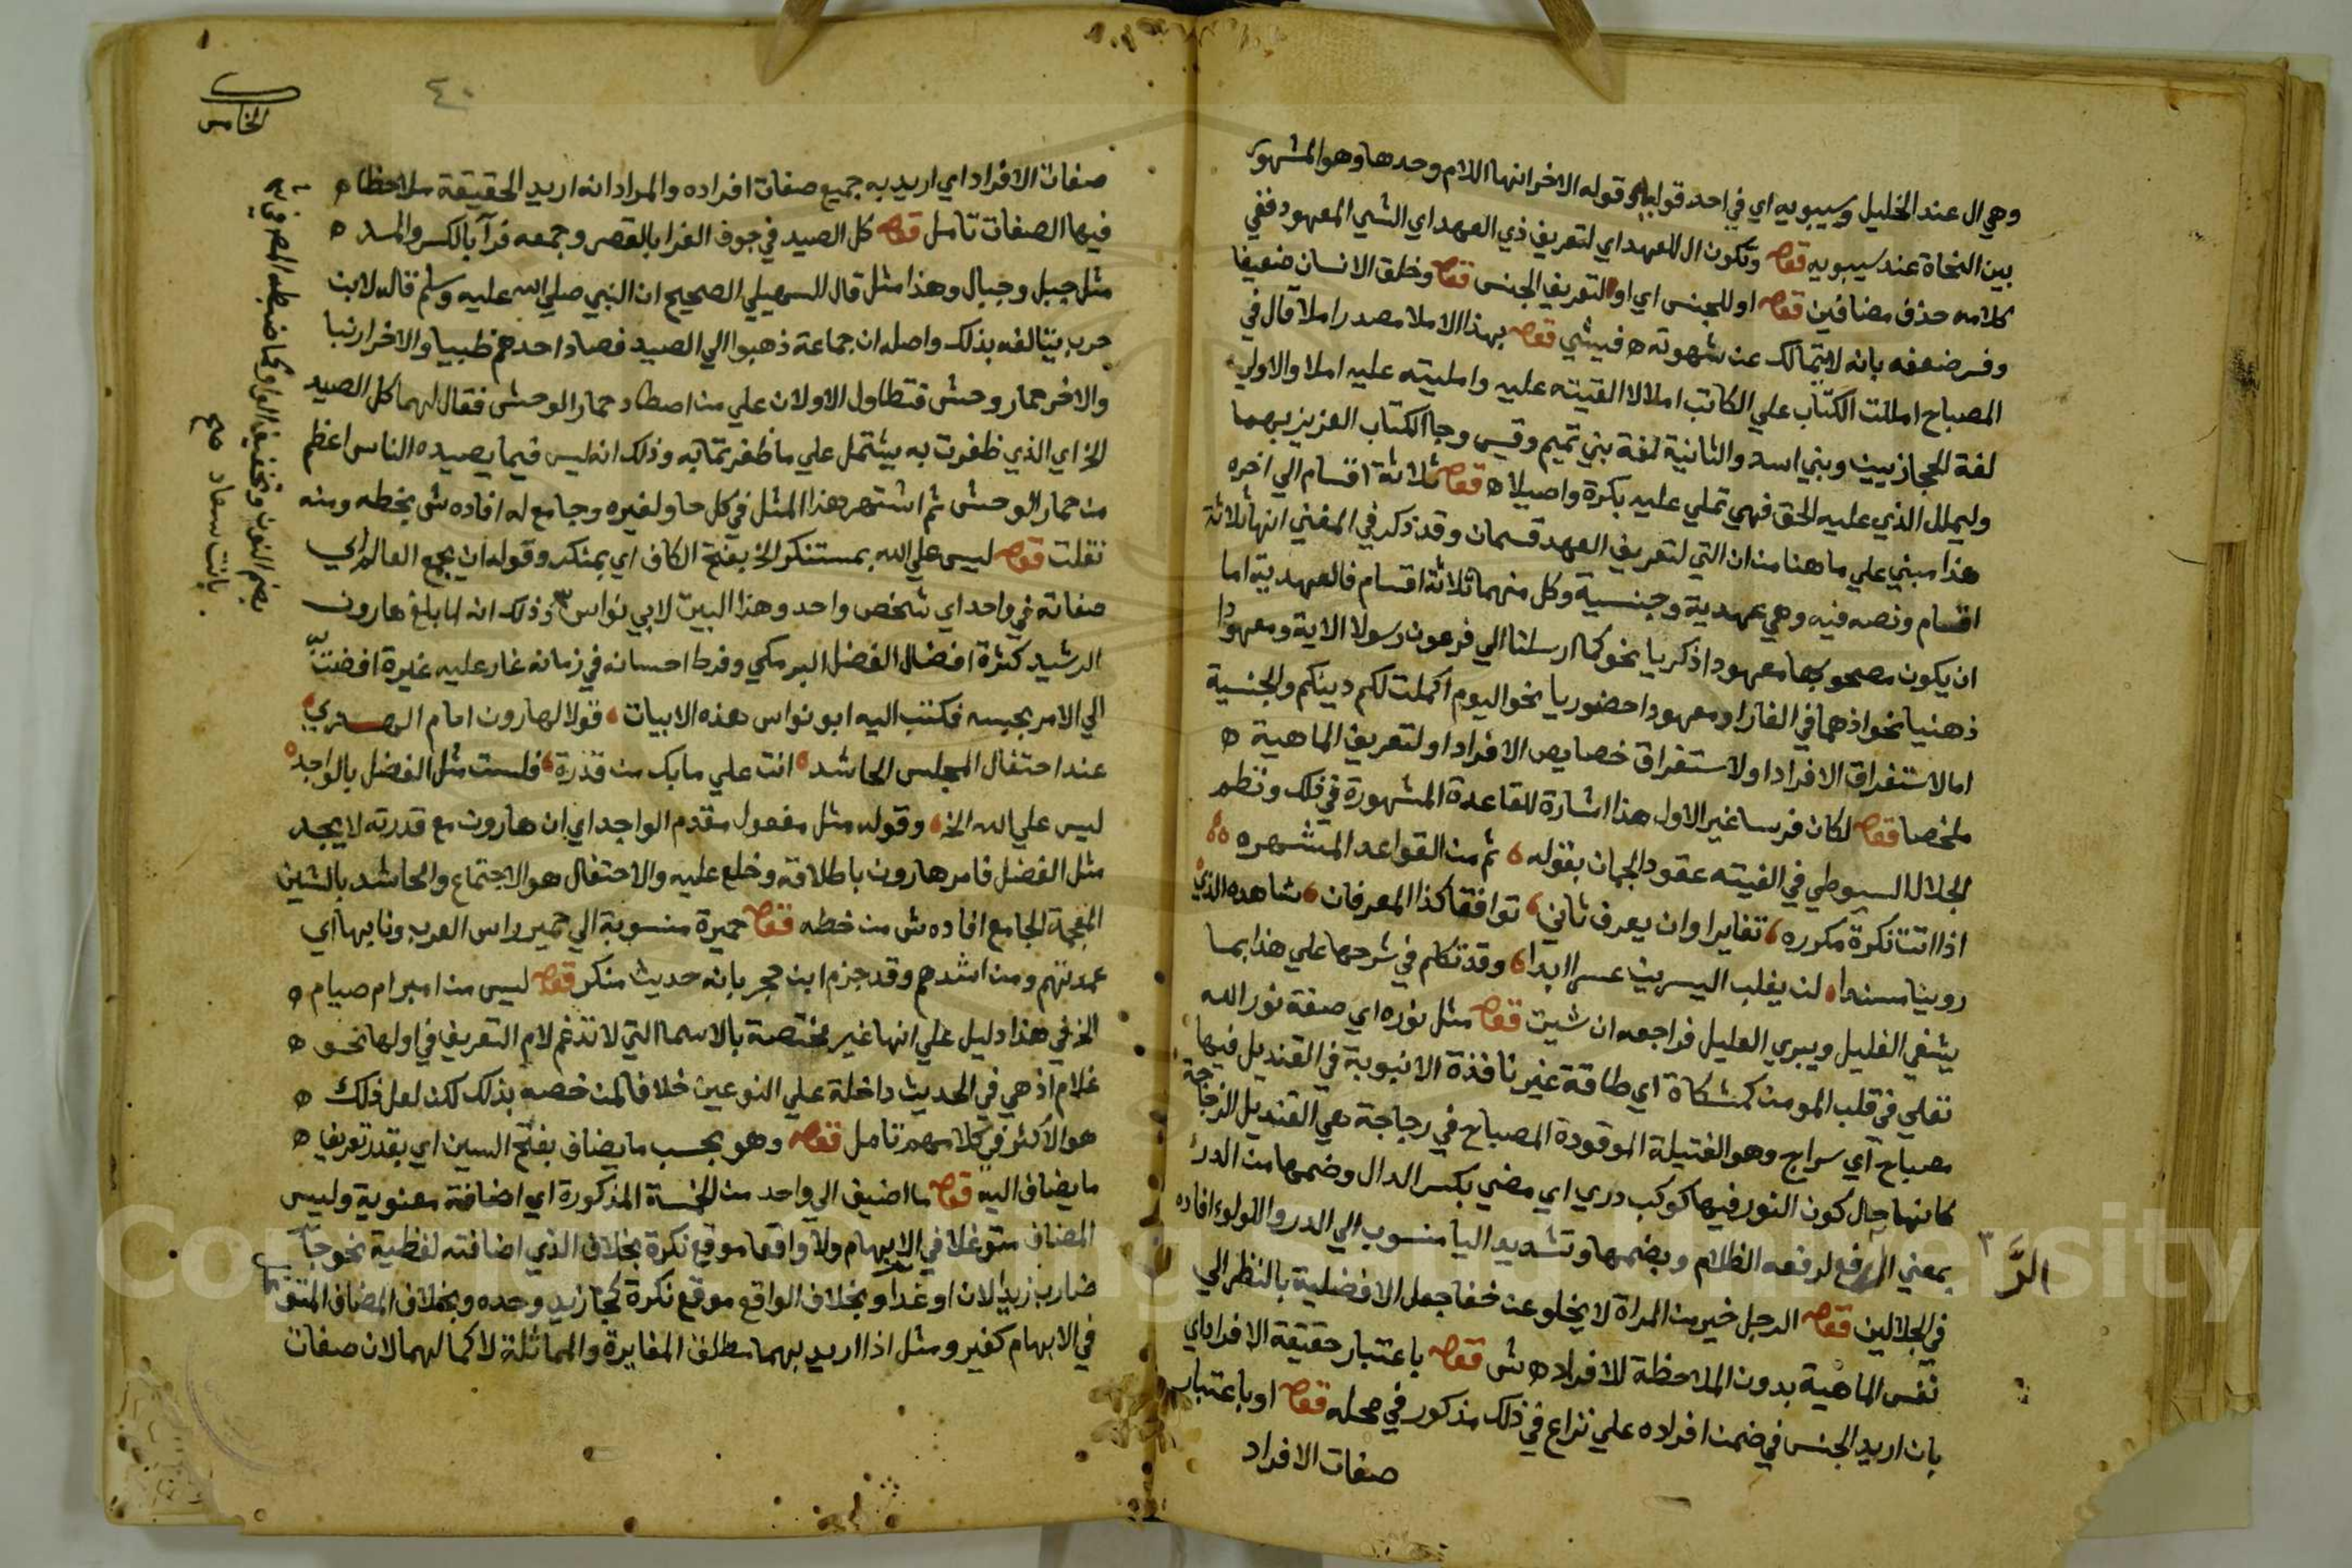 وهي ال عند الخليل وسيبويه اي في احد قوليه وقوله الاخر انها اللام وحدها وهو المشهور
بين النحاة عند سيبويه قوله وتكون ال للعهد اي لتعريف ذي العهد اي الشي المعهود ففي
كلامه حذف مضافين قوله او للجنس اي او لتعريف الجنس قوله وخلق الانسان ضعيفا
وفسر ضعفه بانه لا يتمالك عن شهوته ه فيشي قوله بهذا الاملا مصدر املا قال في
المصباح امللت الكتاب علي الكاتب املالا القيته عليه وامليته عليه املا والاولي
لغة للحجازيين وبني اسد والثانية لغة بني تميم وقيس وجا الكتاب العزيز بهما
وليملل الذي عليه الحق فهي تملي عليه بكرة واصيلا ه قوله ثلاثة اقسام الي اخره
هذا مبني علي ما هنا من ان التي لتعريف العهد قسمان وقد ذكر في المغني انها ثلاثة
اقسام ونصه فيه وهي عهدية وجنسية وكل منهما ثلاثة اقسام فالعهدية اما
ان يكون مصحوبها معهودا ذكريا نحو كما ارسلنا الي فرعون رسولا الاية ومعهودا
ذهنيا نحو اذ هما في الغار او معهودا حضوريا نحو اليوم اكملت لكم دينكم والجنسية
اما لاستغراق الافراد او لاستغراق خصايص الافراد او لتعريف الماهية ه
ملخصا قوله لكان فرسا غير الاول هذا اشارة للقاعدة المشهورة في ذلك ونظم
الجلال السيوطي في الفيته عقود الجمان بقوله ثم من القواعد المشتهره
اذا اتت نكرة مكرره تغايرا وان يعرف ثاني توافقا كذا المعرفان شاهده الذي
روينا مسندا لن يغلب اليسرين عسر ابدا وقد تكلم في شرحها علي هذا بما
يشفي الغليل ويبري العليل فراجعه ان شيت قوله مثل نوره اي صفة نور الله
تعلي في قلب المومن كمشكاة اي طاقة غير نافذة الانبوبة في القنديل فيها
مصباح اي سراج وهو الفتيلة الموقودة المصباح في زجاجة هي القنديل الزجاجة
كانها حال كون النور فيها كوكب دري اي مضي بكسر الدال وضمها من الدرء
بمعني الدفع لدفعه الظلام وبضمها وتشديد اليا منسوب الي الدر واللولوء افاده
في الجلالين قوله الرجل خير من المراة لا يخلو عن خفا جعل الافضلية بالنظر الي
نفس الماهية بدون الملاحظة للافراد ه ش قوله باعتبار حقيقة الافراد اي
بان اريد الجنس في ضمن افراده علي نزاع في ذلك مذكور في محله قوله او باعتبار
صفات الافراد
الدَّ ٣
٤٠
الخامس
صفات الافراد اي اريد به جميع صفات افراده والمراد انه اريد الحقيقة ملاحظا ه
فيها الصفات تامل قوله كل الصيد في جوف الفرا بالقصر وجمعه فرآ بالكسر والمد ه
مثل جبل وجبال وهذا مثل قال السهيلي الصحيح ان النبي صلي الله عليه وسلم قاله لابن
حرب يتالفه بذلك واصله ان جماعة ذهبوا الي الصيد فصاد احدهم ظبيا والاخر ارنبا
والاخر حمار وحش فتطاول الاولان علي من اصطاد حمار الوحش فقال لهما كل الصيد
الخ اي الذي ظفرت به يشتمل علي ما ظفرتما به وذلك انه ليس فيما يصيده الناس اعظم
من حمار الوحش ثم اشتهر هذا المثل في كل حاو لغيره وجامع له افاده ش بخطه ومنه
نقلت قوله ليس علي الله بمستنكر الخ بفتح الكاف اي بمنكر وقوله ان يجمع العالم اي
صفاته في واحد اي شخص واحد وهذا البيت لابي نواس وذلك انه لما بلغ هارون
الرشيد كثرة افضال الفضل البرمكي وفرط احسانه في زمانه غار عليه غيرة افضت
الي الامر بحبسه فكتب اليه ابو نواس هذه الابيات قولا لهارون امام الهدي
عند احتفال المجلس الحاشد انت علي ما بك من قدرة فلست مثل الفضل بالواجد
ليس علي الله الخ وقوله مثل مفعول مقدم الواجد اي ان هارون مع قدرته لا يجد
مثل الفضل فامر هارون باطلاقه وخلع عليه والاحتفال هو الاجتماع والحاشد بالشين
المعجمة الجامع افاده ش من خطه قوله حميرة منسوبة الي حمير راس العرب ونابها اي
عمدتهم ومن اشدهم وقد جزم ابن حجر بانه حديث منكر قوله ليس من امبر ام صيام ه
الخ في هذا دليل علي انها غير مختصة بالاسما التي لا تدغم لام التعريف في اولها نحو ه
غلام اذ هي في الحديث داخلة علي النوعين خلافا لمن خصه بذلك لكن لعل ذلك ه
هو الاكثر في كلامهم تامل قوله وهو بحسب ما يضاف بفتح السين اي بقدر تعريف ه
ما يضاف اليه قوله ما اضيف الي واحد من الخمسة المذكورة اي اضافة معنوية وليس
المضاف متوغلا في الابهام ولا واقعا موقع نكرة بخلاف الذي اضافته لفظية نحو جا
ضارب زيد الان او غدا وبخلاف الواقع موقع نكرة كجا زيد وحده وبخلاف المضاف المتوغل
في الابهام كغير ومثل اذا اريد بهما مطلق المغايرة والمماثلة لا كمالهما لان صفات
بضم النون وتخفيف الواو كما ضبطه المص في
بانت سعاد صح